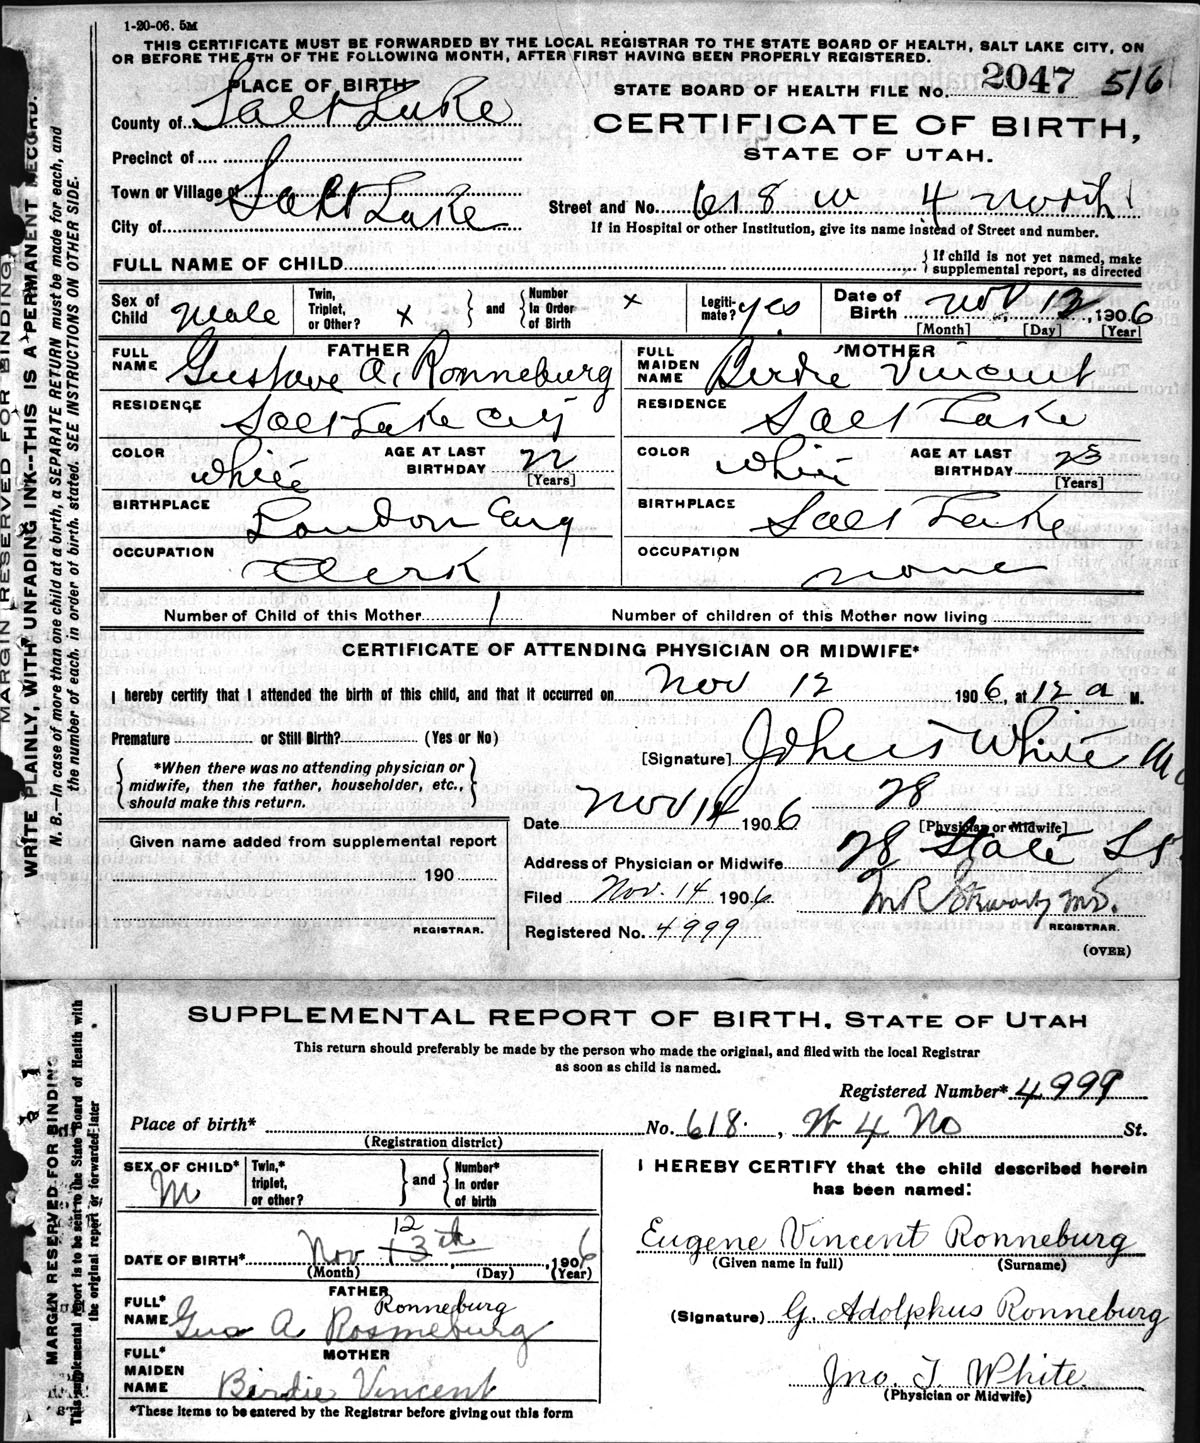 1-20-06. 5M
THIS CERTIFICATE MUST BE FORWARDED BY THE LOCAL REGISTRAR TO THE STATE BOARD OF HEALTH, SALT LAKE CITY, ON
OR BEFORE THE 5TH OF THE FOLLOWING MONTH, AFTER FIRST HAVING BEEN PROPERLY REGISTERED.
PLACE OF BIRTH
STATE BOARD OF HEALTH FILE No. 2047 516
County of Salt Lake
CERTIFICATE OF BIRTH,
Precinct of
STATE OF UTAH.
Town or Village of Salt Lake
Street and No. 618 W 4 North
City of
If in Hospital or other Institution, give its name instead of Street and number.
FULL NAME OF CHILD
{ If child is not yet named, make
supplemental report, as directed
Sex of Child Male
Twin, Triplet, or Other? x } and { Number In Order of Birth x
Legiti-mate? yes
Date of Birth Nov 12, 1906
[Month] [Day] [Year]
FATHER
FULL NAME Gustave A. Ronneburg
MOTHER
FULL MAIDEN NAME Birdie Vincent
RESIDENCE Salt Lake City
RESIDENCE Salt Lake
COLOR White AGE AT LAST BIRTHDAY 22 [Years]
COLOR White AGE AT LAST BIRTHDAY 23 [Years]
BIRTHPLACE London Eng
BIRTHPLACE Salt Lake
OCCUPATION Clerk
OCCUPATION none
Number of Child of this Mother 1 Number of children of this Mother now living
CERTIFICATE OF ATTENDING PHYSICIAN OR MIDWIFE*
I hereby certify that I attended the birth of this child, and that it occurred on Nov 12 1906, at 12 a M.
Premature or Still Birth? (Yes or No)
[Signature] White
{ *When there was no attending physician or
midwife, then the father, householder, etc.,
should make this return. }
Date Nov 14 1906 28
[Physician or Midwife]
Address of Physician or Midwife 28 State St
Given name added from supplemental report
190
REGISTRAR.
Filed Nov. 14 1906
REGISTRAR.
Registered No. 4999
(OVER)
MARGIN RESERVED FOR BINDING.
WRITE PLAINLY, WITH UNFADING INK--THIS IS A PERMANENT RECORD.
N. B.--In case of more than one child at a birth, a SEPARATE RETURN must be made for each, and
the number of each, in order of birth, stated. SEE INSTRUCTIONS ON OTHER SIDE.
SUPPLEMENTAL REPORT OF BIRTH, STATE OF UTAH
This return should preferably be made by the person who made the original, and filed with the local Registrar
as soon as child is named.
Registered Number* 4999
Place of birth* No. 618. , W 4 No St.
(Registration district)
SEX OF CHILD* M
Twin,* triplet, or other? } and { Number* In order of birth
I HEREBY CERTIFY that the child described herein
has been named:
12
DATE OF BIRTH* Nov 13th, 1906
(Month) (Day) (Year)
Eugene Vincent Ronneburg
(Given name in full) (Surname)
FATHER
Ronneburg
FULL* NAME Gus A Rosmeburg
(Signature) G. Adolphus Ronneburg
MOTHER
FULL* MAIDEN NAME Birdie Vincent
Jno. T. White
(Physician or Midwife)
*These items to be entered by the Registrar before giving out this form
MARGIN RESERVED FOR BINDING
This supplemental report is to be sent to the State Board of Health with
the original report or forwarded later